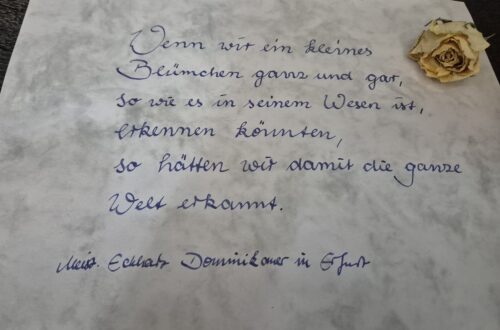 Wenn wir ein kleines
Blümchen ganz und gar,
so wie es in seinem Wesen ist,
erkennen könnten,
so hätten wir damit die ganze
Welt erkannt.
Meist. Eckhats Dominikaner in Erfurt